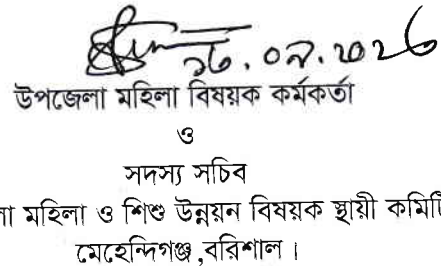 ১৬.০৯.২০২৬
উপজেলা মহিলা বিষয়ক কর্মকর্তা
ও
সদস্য সচিব
মহিলা ও শিশু উন্নয়ন বিষয়ক স্থায়ী কমিটি
মেহেন্দিগঞ্জ,বরিশাল।